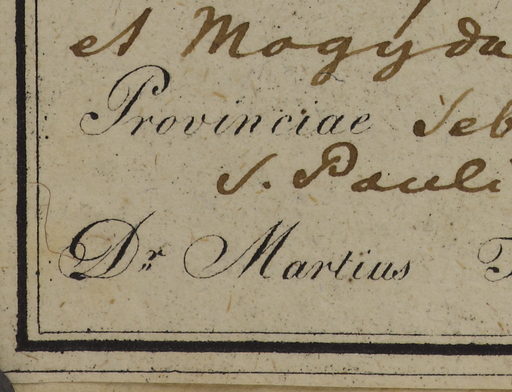 et Mogyda
Provinciae Seb
S. Pauli
Dr Martius